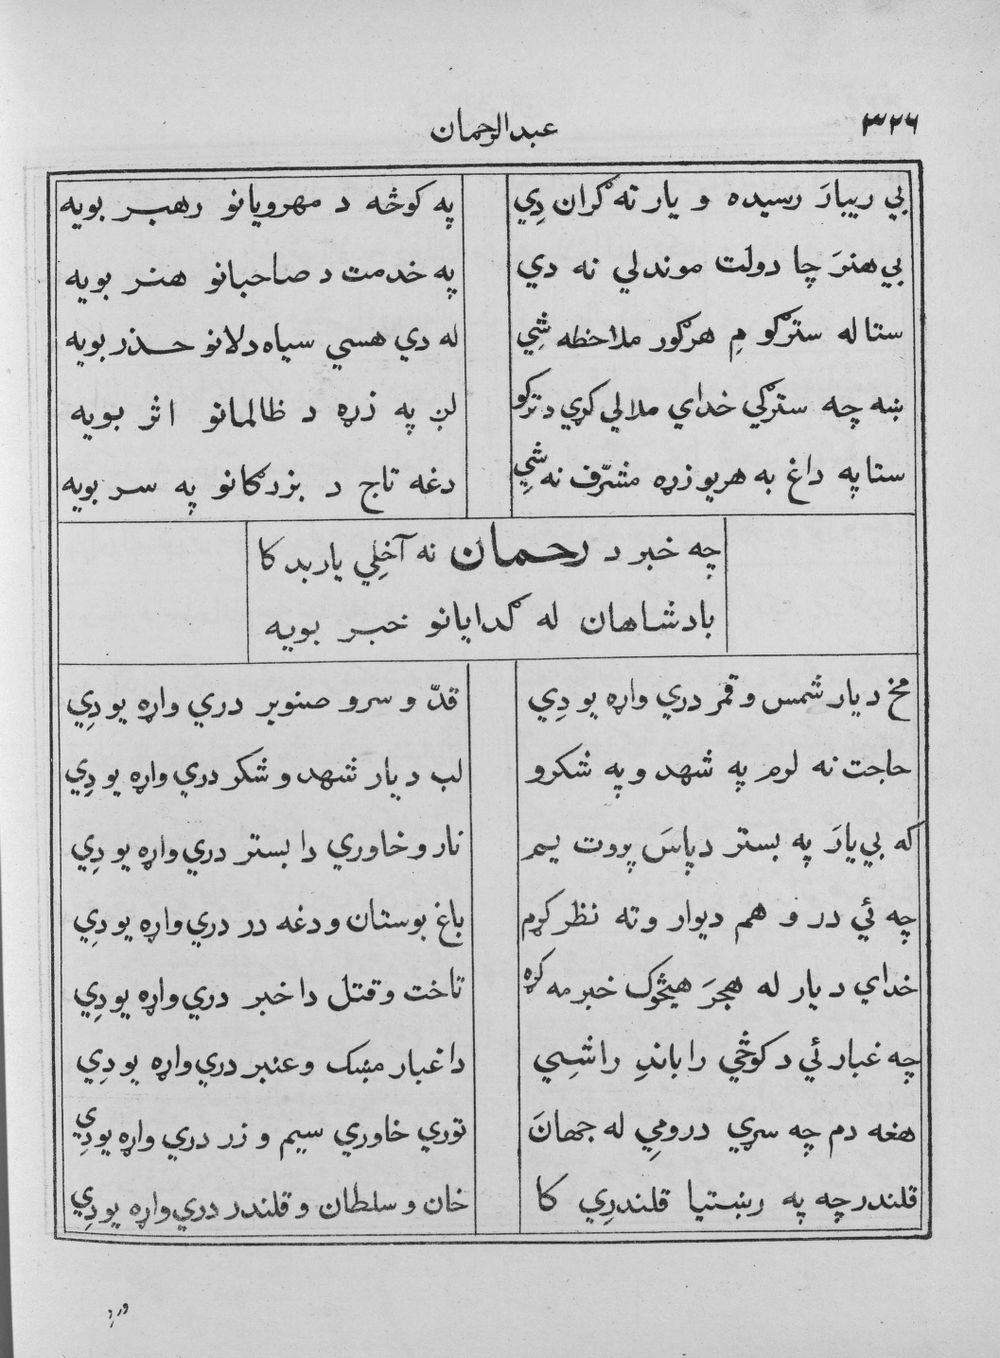 ٣٢٦
عبدالرحمان
بي ريبارَ رسيده و يار ته ګران دِي
په کوڅه د مهرويانو رهبر بويه
بي هنرَ چا دولت موندلي نه دي
په خدمت د صاحبانو هنر بويه
ستا له سترګو مِ هرګور ملاحظه شِي
له دي هسي سياه دلانو حذر بويه
ښه چه سترګي خداي ملالي کړي د ترکو
لږ په زړه د ظالمانو اثر بويه
ستا په داغ به هر يو زړه مشرّف نه شِي
دغه تاج د بزرګانو په سر بويه
چه خبر د رحمان نه آخلِي يار بد کا
بادشاهان له ګدايانو خبر بويه
مخ د يار شمس و قمر دري واړه يو دِي
قدّ و سرو صنوبر دري واړه يو دِي
حاجت نه لرم په شهد و په شکرو
لب د يار شهد و شکر دري واړه يو دِي
که بي يارَ په بستر د پاسَ پروت يم
نار و خاوري دا بستر دري واړه يو دِي
چه ئي در و هم ديوار و ته نظر کړم
باغ بوستان و دغه در دري واړه يو دِي
خداي د يار له هجرَ هيڅوک خبر مه کړه
تاخت و قتل دا خبر دري واړه يو دِي
چه غبار ئي د کوڅي را باندِ راشِي
دا غبار مښک و عنبر دري واړه يو دِي
هغه دم چه سړي درومِي له جهانَ
توري خاوري سيم و زر دري واړه يو دِي
قلندر چه په رښتيا قلندرِي کا
خان و سلطان و قلندر دري واړه يو دِي